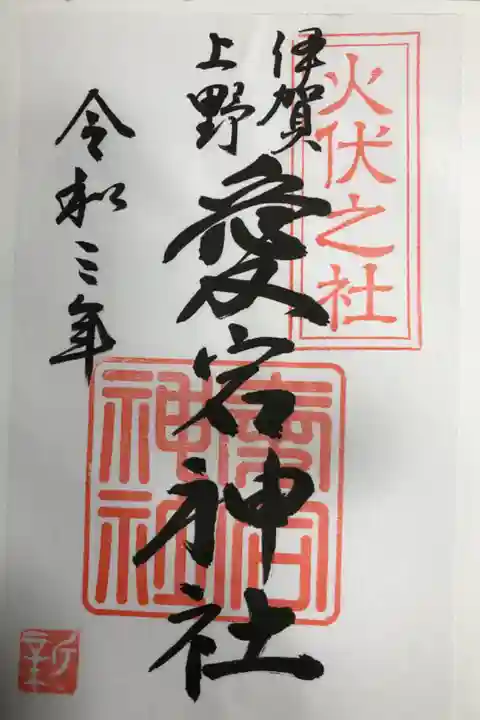 火伏之社
伊賀
上野
愛宕神社
愛宕
神社
令和三年
新